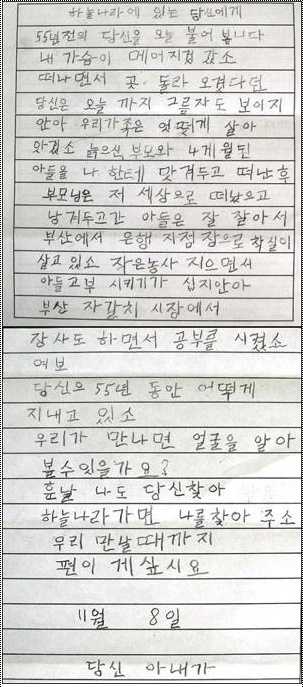 하늘나라에 있는 당신에게
55년전의 당신을 오늘 불어 봅니다
내 가슴이 메어지컸 갔소
떠나면서 곳. 돌라 오겠다던
당신은 오늘 까지 그름자도 보이지
안아 우리가족은 엇떻게 살아
왔겠소 늙으신 부모와 4개월된
아들을 나 한테 맞겨두고 떠난후
부모님은 저 세상으로 떠났으고
남겨두고간 아들은 잘 잘아서
부산에서 은행 지점장으로 착실이
살고 있소 작은농사 지으면서
아들고부 시키기가 십지안아
부산 자갈치 시장에서
장사도 하면서 공부를 시켰소
여보
당신으 55년 동안 어떻게
지내고 있소
우리가 만나면 얼굴을 알아
볼수있을가요?
훈날 나도 당신찾아
하늘나라가면 나를찾아 주소
우리 만날때까지
편이 게싶시요
11월 8일
당신 아내가